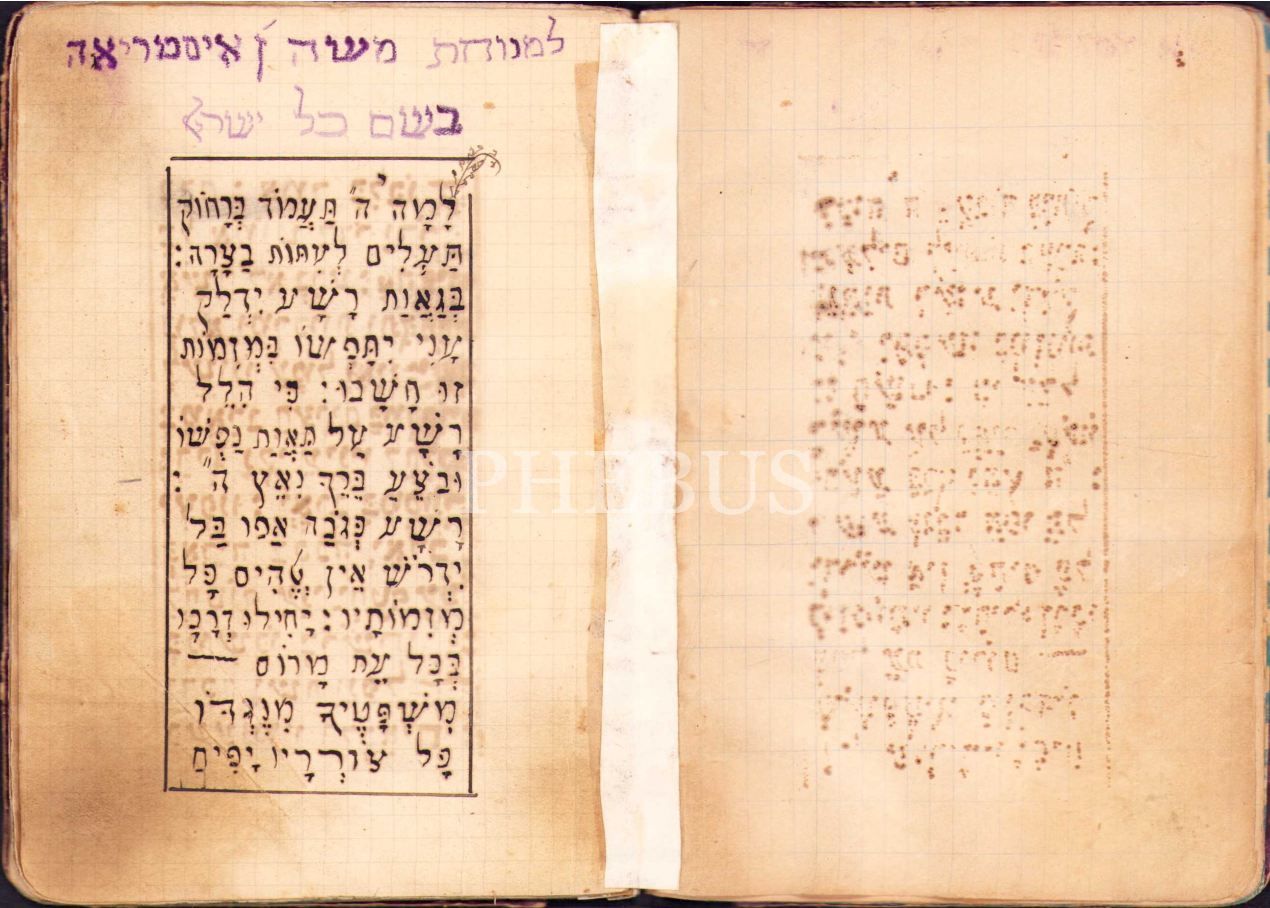 למנוחת משה
בשם כל ישר
לָמָה ה" תַּעֲמוֹד בְּרָחוֹק
תַּעְלִים לְעִתּוֹת בַּצָּרָה:
בְּגַאֲוַת רָשָׁע יִדְלַק
עָנִי יִתָּפְשׂוֹ בִּמְזִמּוֹת
זוּ חָשָׁבוּ: כִּי הִלֵל
רָשָׁע עַל תַּאֲוַת נַפְשׁוֹ
וּבֹצֵעַ בֵּרֵךְ נִאֵץ ה":
רָשָׁע כְּגֹבַהּ אַפּוֹ בַּל
יִדְרֹשׁ אֵין כָּל
מְזִמּוֹתָיו: יָחִילוּ דְרָכָו
בְּכָל עֵת מָרוֹם
מִשְׁפָּטֶיךָ מִנֶגְדוֹ
כָּל צוֹרְרָיו יָפִיחַ
PHEBUS